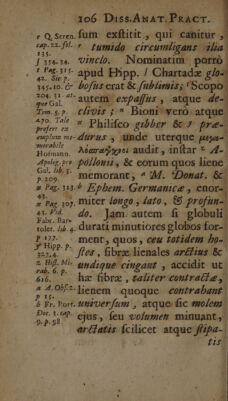 106 DISS. ANAT. PRACT.
r Q. Seren.
cap. 22. sol.
135.
ſ 354. 34.
t Pag. 315.
42. Sic p.
345. 10. &
204. 23. al-
que Gal.
Tom. 5. p.
270. Tale
profert ex-
emplum me-
morabile
Hofmann.
Apolog. pro
Gal. lib. 3.
p. 209.
u Pag. 323.
43.
x Pag. 307.
43. Vid.
Fabr. Bar-
tolet. lib. 4.
p 177.
y Hipp. p.
322. 4.
z Hist. Mi-
rab. 6. p.
616.
a A. Obs. 2.
p 15.
b Fr. Port.
Dec. 1. cap.
9. p. 98.
ſum exſtitit, qui canitur,
r tumido circumligans ilia
vinclo. Nominatim porrò
apud Hipp. ſ Chartadæ glo-
boſus erat & ſublimis; t Scopo
autem expaſſus, atque de-
clivis; u Bioni verò atque
x Philiſco gibber & y præ-
durus, unde uterque
audit, inſtar z A-
pollonii, & eorum quos liene
memorant, a M. Donat. &
b Ephem. Germanicæ, enor-
miter longo, lato, & profun-
do. Jam autem ſi globuli
durati minutiores globos for-
ment, quos, ceu totidem ho-
ſtes, fibræ lienales arctius &
undique cingant, accidit ut
hæ fibræ, taliter contractæ,
lienem quoque contrahant
univerſum, atque ſic molem
ejus, ſeu volumen minuant,
arctatis ſcilicet atque ſtipa-
tis